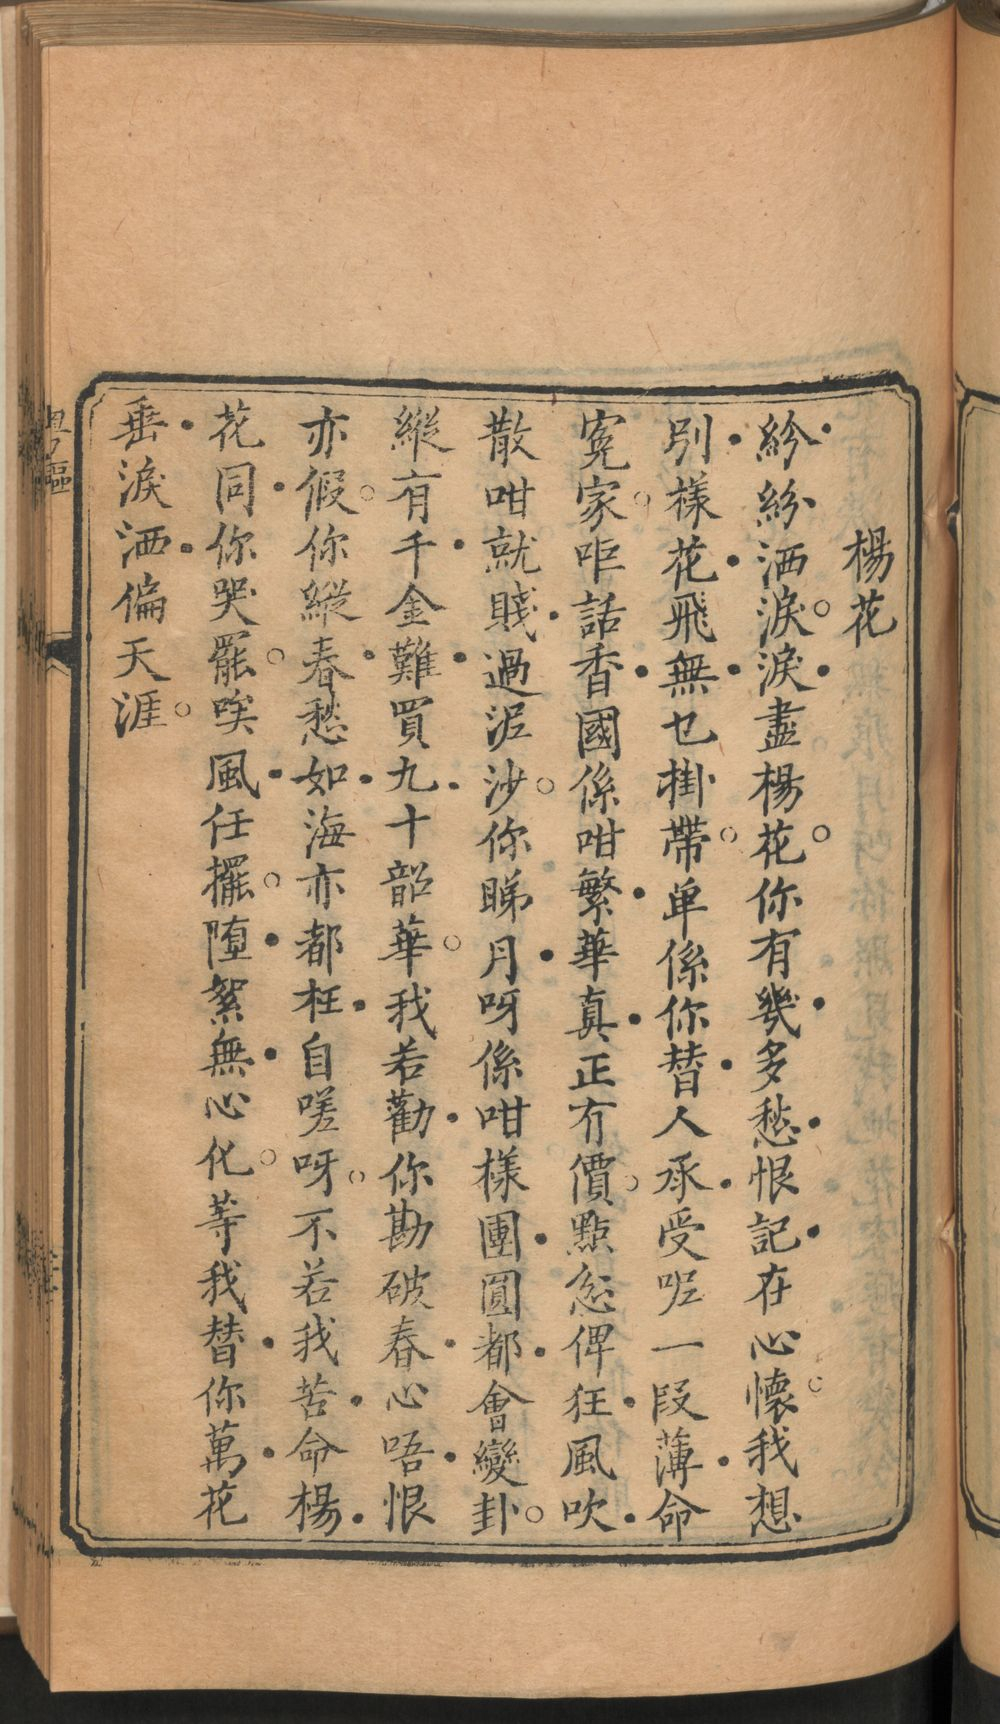 楊花
紛紛洒淚淚盡楊花你有幾多愁恨記在心懷我想
別樣花飛無乜掛帶单係你替人承受呢一段薄命
冤家咋話香國係咁繁華真正冇價點忿俾狂風吹
散咁就賤過泥沙你睇月呀係咁樣團圓都會變卦
縱有千金難買九十韶華我若勸你勘破春心唔恨
亦假你縱春愁如海亦都枉自嗟呀不若我苦命楊
花同你哭罷唉風任擺墮絮無心化等我替你萬花
垂淚洒偏天涯